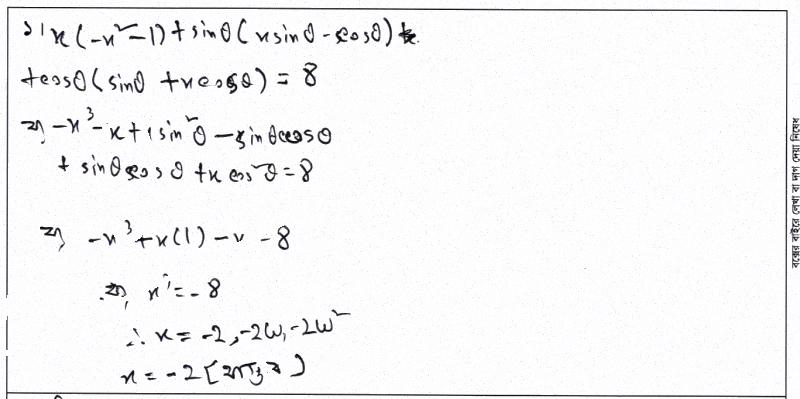 ১। x(-x²-1)+sinθ(xsinθ-cosθ)
+cosθ(sinθ+xcosθ)=8
⇒ -x³-x+xsin²θ-sinθcosθ
+sinθcosθ+xcos²θ=8
বা, -x³+x(1)-x-8
বা, x³=-8
∴ x=-2,-2ω,-2ω²
x=-2 [বাস্তব]
বক্সের বাইরে লেখা বা দাগ দেয়া নিষেধ